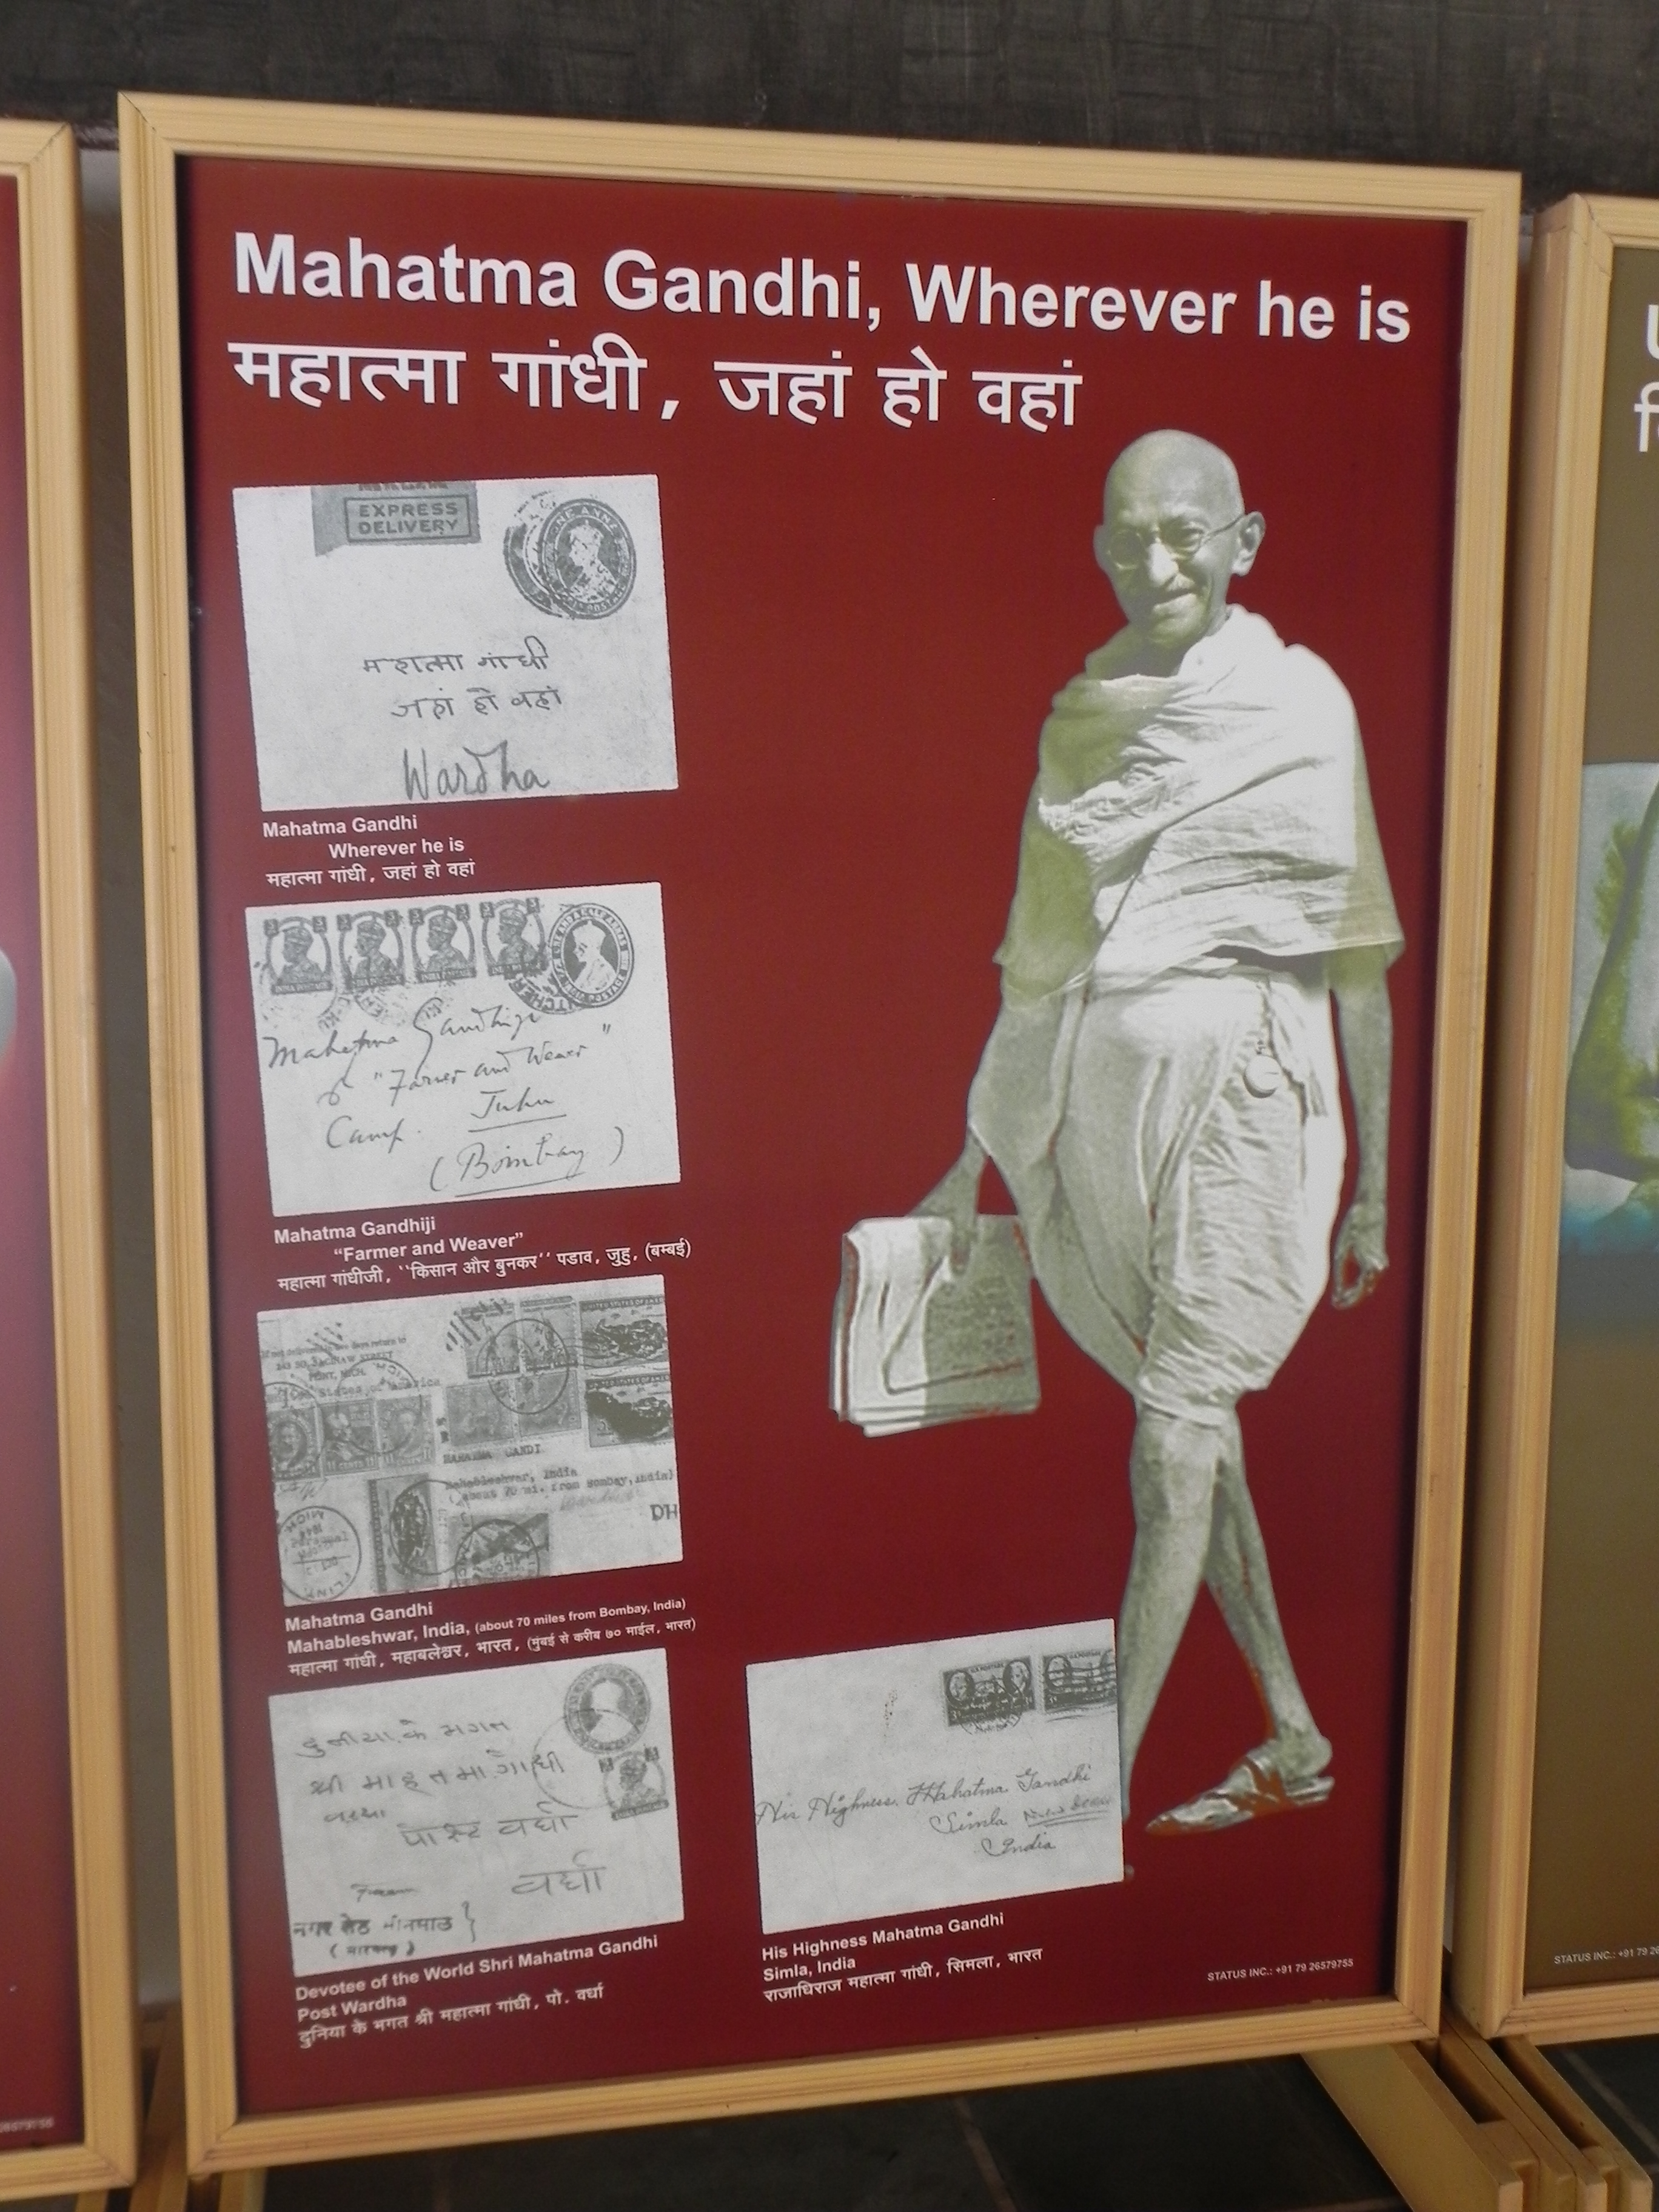 Mahatma Gandhi, Wherever he is
महात्मा गांधी, जहां हो वहां
EXPRESS
DELIVERY
महात्मा गांधी
जहां हो वहां
Wardha
Mahatma Gandhi
Wherever he is
महात्मा गांधी, जहां हो वहां
Mahatma Gandhiji
"Farmer and Weaver"
Camp. Juhu
(Bombay)
Mahatma Gandhiji
"Farmer and Weaver"
महात्मा गांधीजी, ''किसान और बुनकर'' पडाव, जुहु, (बम्बई)
If not delivered in days return to
243 SO. SAGINAW STREET
FLINT, MICH.
States of America
MAHATMA GANDI
Mahableshwar, India
(about 70 mi. from Bombay, India)
DH
Mahatma Gandhi
Mahableshwar, India, (about 70 miles from Bombay, India)
महात्मा गांधी, महाबलेश्वर, भारत, (मुंबई से करीब ७० माईल, भारत)
दुनीया के भगत
श्री माहत्मा गांधी
पोस्ट वर्धा
वर्धा
From
नगर सेठ
Devotee of the World Shri Mahatma Gandhi
Post Wardha
दुनिया के भगत श्री महात्मा गांधी, पो. वर्धा
His Highness Mahatma Gandhi
Simla New Delhi
India
His Highness Mahatma Gandhi
Simla, India
राजाधिराज महात्मा गांधी, सिमला, भारत
STATUS INC.: +91 79 26579755
STATUS INC.: +91 79 26
26579755